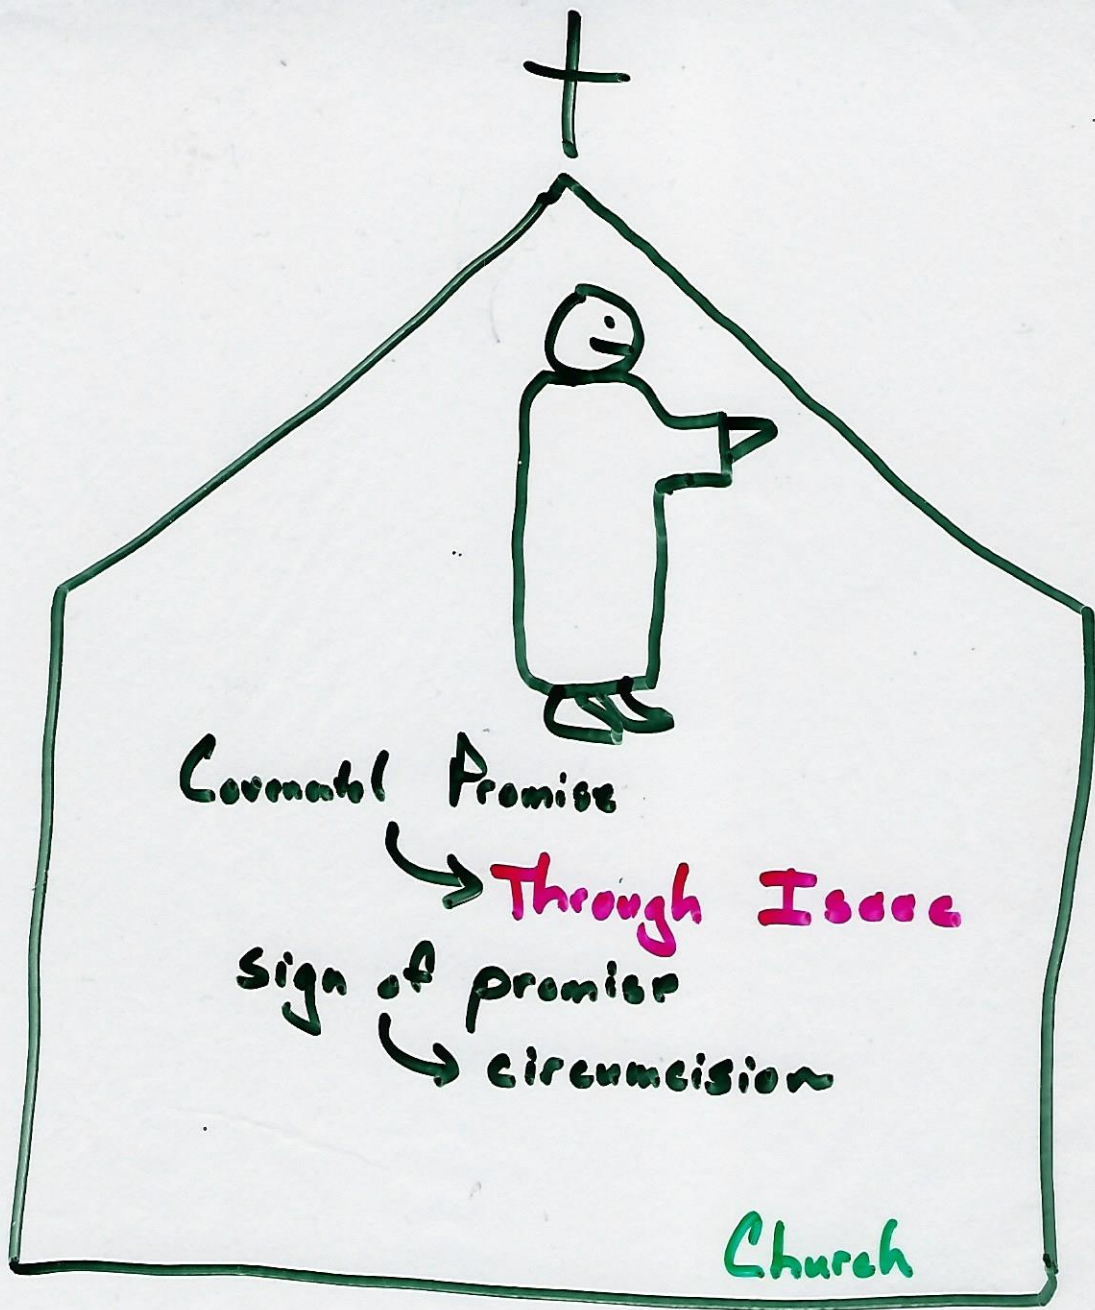 Covenatal Promise
Through Isaac
sign of promise
circumcision
Church